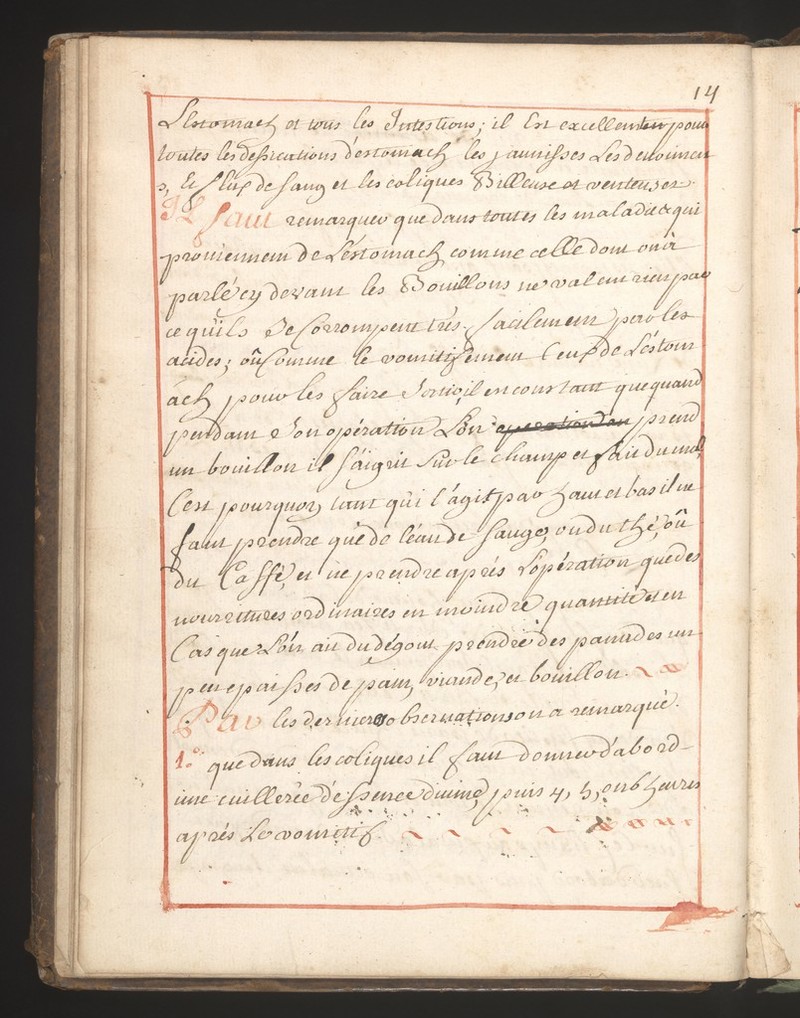 14
L'Estomach et tous les Intestions; il Est excellent pour
toutes les dessications d'estomach les jaunisses Les devoimen
s, le flux de sang et les coliques Billeuse et venteuses
Il faut remarquer que dans toutes les maladie qui
proviennent de L'estomach comme celle dont on à
parlé cy devant les Bouillons ne valent rien par
ce qüils Se Corrompent trés facilement par les
acides; oû Comme le vomitif emeut Ceux de L'estom
ach pour les faire Sortir il en constant que quand
pendant Son opération L'on prend
un bouillon il s'äigrit sur le champ et fait du mal,
C'est pourquoy tant qüi l'âgit par haut et bas il ne
faut prendre que de l'éau de sauge, ou du thé, oû
du Caffé, et ne prendre aprés L'opération que des
nourritures ordinaires en moindre quantité et en
Cas que L'ón ait du dégout prendre des panades un
peu epaisses de pain, viande, et bouillon.
Par les derniers observations on a remarqué.
1.º que dans les coliques il faut donner d'abord
une cuillerée d'éssence divine, puis 4, 5, ou 6 heures
aprés Le vomitif